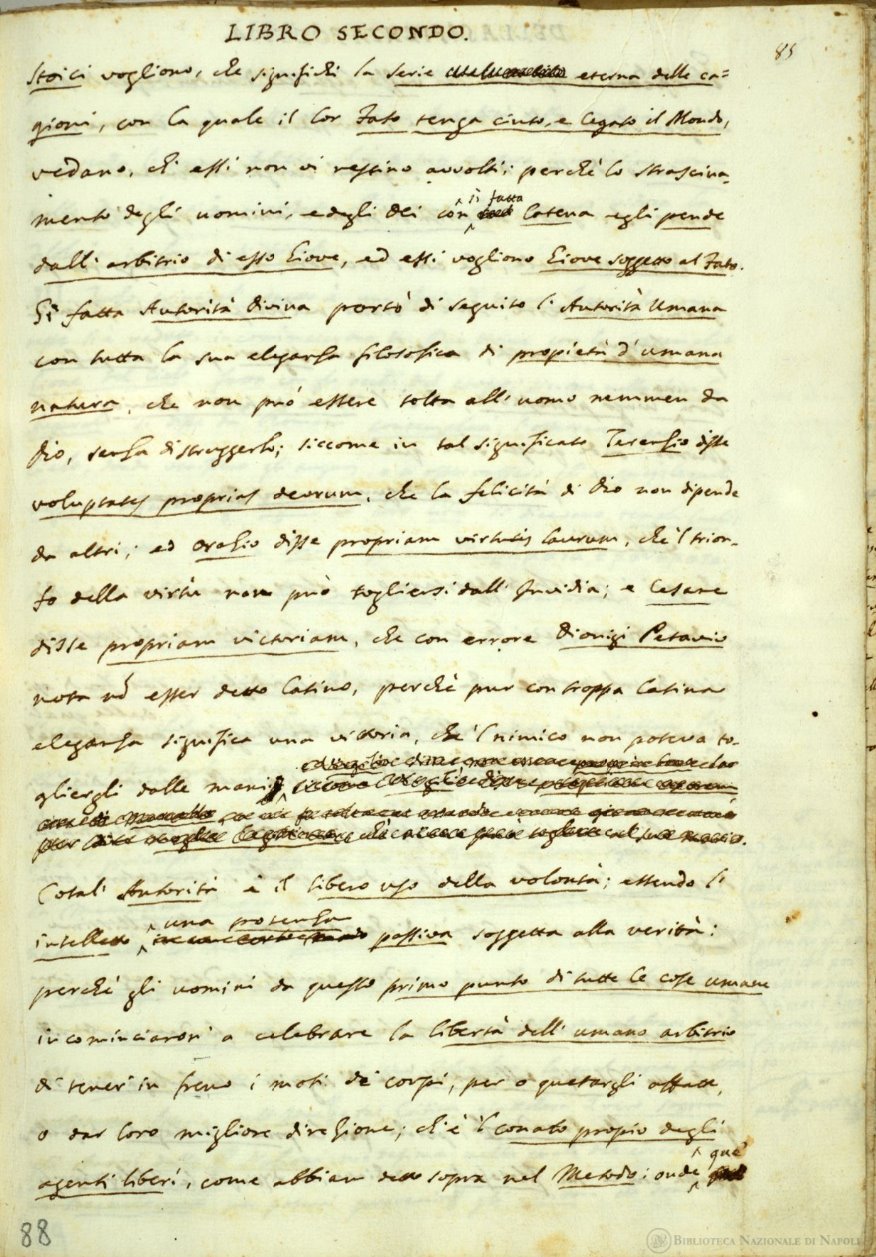 LIBRO SECONDO.
85
Stoici vogliono, che significhi la serie eterna delle ca=
gioni, con la quale il lor Fato tenga cinto, e legato il Mondo,
vedano, ch' essi non vi restino avvolti; perchè lo strascina-
mento degli uomini, e degli Dei con
sì fatta
Catena egli pende
dall' arbitrio di esso Giove, ed essi vogliono Giove soggetto al Fato.
Sì fatta Autorità Divina portò di seguito l' Autorità Umana
con tutta la sua eleganza filosofica di propietà d' umana
natura, che non può essere tolta all' uomo nemmen da
Dio, senza distruggerlo; siccome in tal significato Terenzio disse
voluptates proprias deorum, che la felicità di Dio non dipende
da altri; ed Orazio disse propriam virtutis laurum, che 'l trion-
fo della virtù non può togliersi dall' Invidia; e Cesare
disse propriam victoriam, che con errore Dionigi Petavio
nota nõ esser detto latino, perchè pur con troppa latina
eleganza significa una vittoria, che 'l nimico non poteva to-
gliergli dalle mani
Cotal' Autorità è il libero uso della volontà; essendo l'
intelletto
una potenza
passiva soggetta alla verità:
perchè gli uomini da questo primo punto di tutte le cose umane
incominciaron' a celebrare la libertà dell' umano arbitrio
di tener' in freno i moti de' corpi, per o quetargli affatto,
o dar loro migliore direzione; ch' è 'l conato propio degli
agenti liberi, come abbiam detto sopra nel Metodo: onde
que'
88
BIBLIOTECA NAZIONALE DI NAPOLI